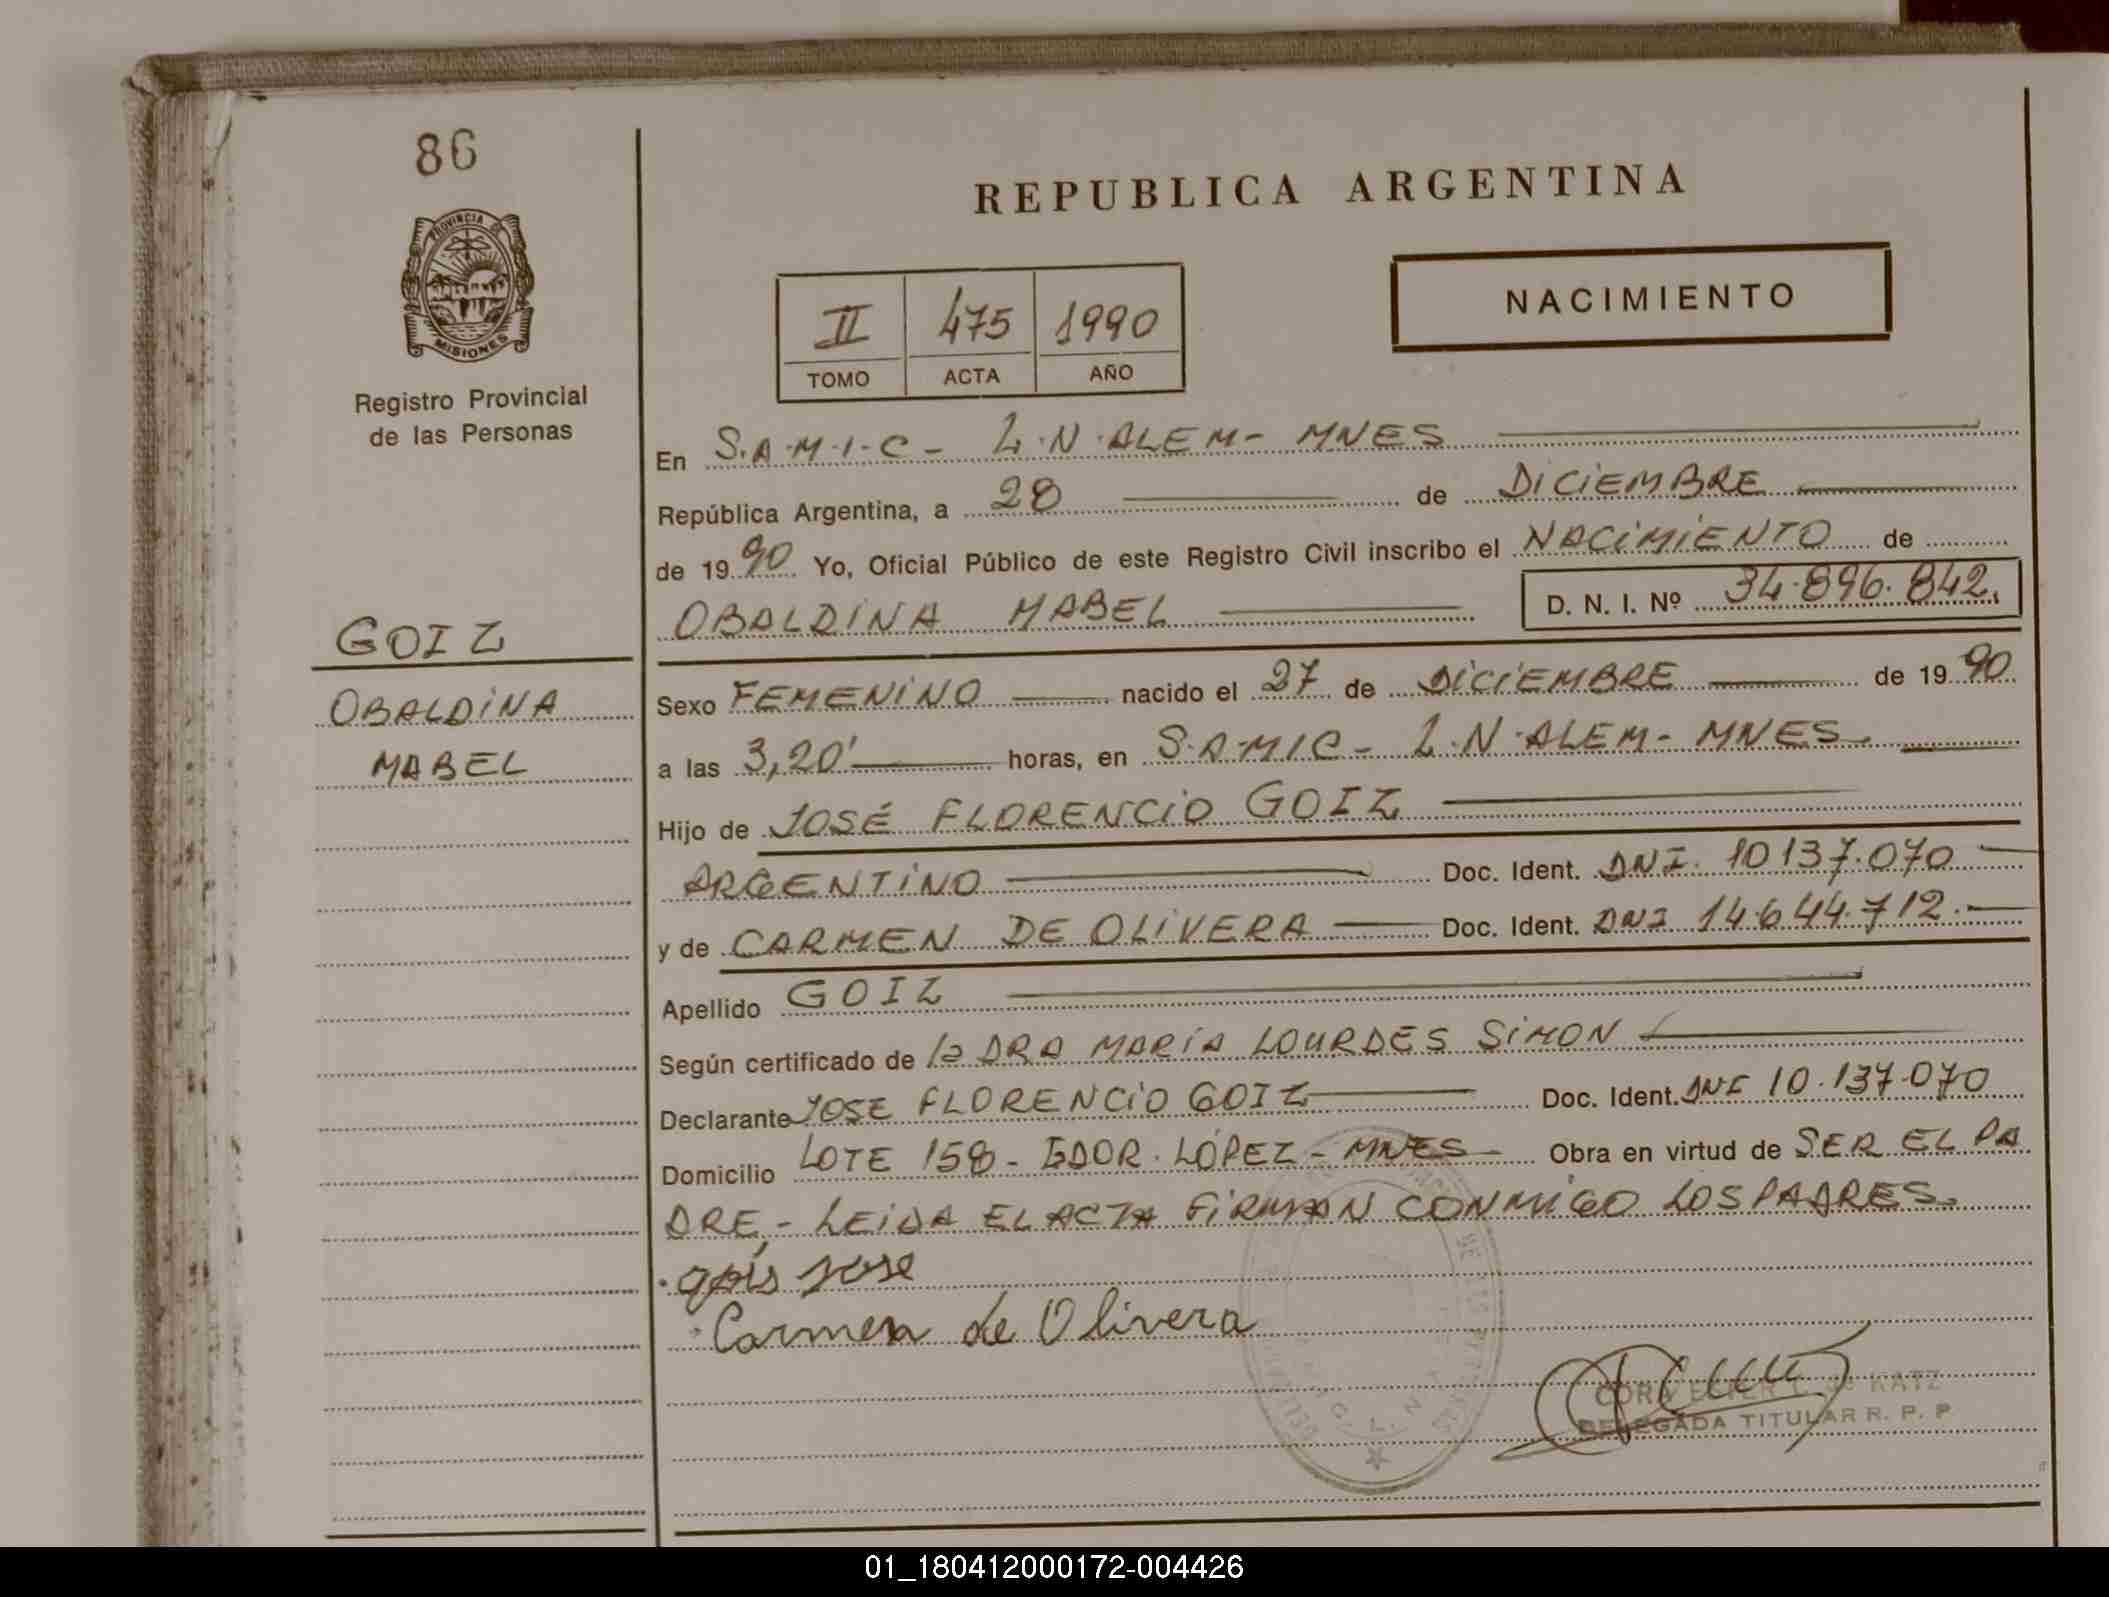 86
REPUBLICA ARGENTINA
PROVINCIA DE
MISIONES
Registro Provincial
de las Personas
II 475 1990
TOMO ACTA AÑO
NACIMIENTO
En S.A.M.I.C - L.N.ALEM - MNES
República Argentina, a 28 de DICIEMBRE
de 1990 Yo, Oficial Público de este Registro Civil inscribo el NACIMIENTO de
OBALDINA MABEL D. N. I. Nº 34.896.842.
GOIZ
OBALDINA
MABEL
Sexo FEMENINO nacido el 27 de DICIEMBRE de 1990
a las 3,20' horas, en S.A.M.I.C - L.N.ALEM - MNES
Hijo de JOSÉ FLORENCIO GOIZ
ARGENTINO Doc. Ident. DNI. 10137.070
y de CARMEN DE OLIVERA Doc. Ident. DNI 14.644.712.
Apellido GOIZ
Según certificado de la DRA MARÍA LOURDES SIMON
Declarante JOSE FLORENCIO GOIZ Doc. Ident. DNI 10.137.070
Domicilio LOTE 158 - GDOR. LÓPEZ - MNES Obra en virtud de SER EL PA
DRE, - LEIDA EL ACTA FIRMAN CONMIGO LOS PADRES.
José
Carmen de Olivera
KATZ
DELEGADA TITULAR R. P. P
01_180412000172-004426